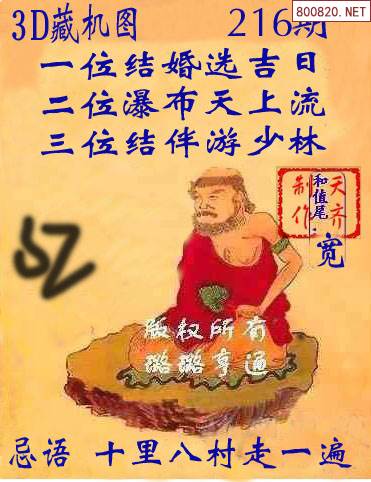 800820.NET
3D藏机图 216期
一位结婚选吉日
二位瀑布天上流
三位结伴游少林
天齐
制作
和值尾
宽
版权所有
璐璐亨通
忌语 十里八村走一遍